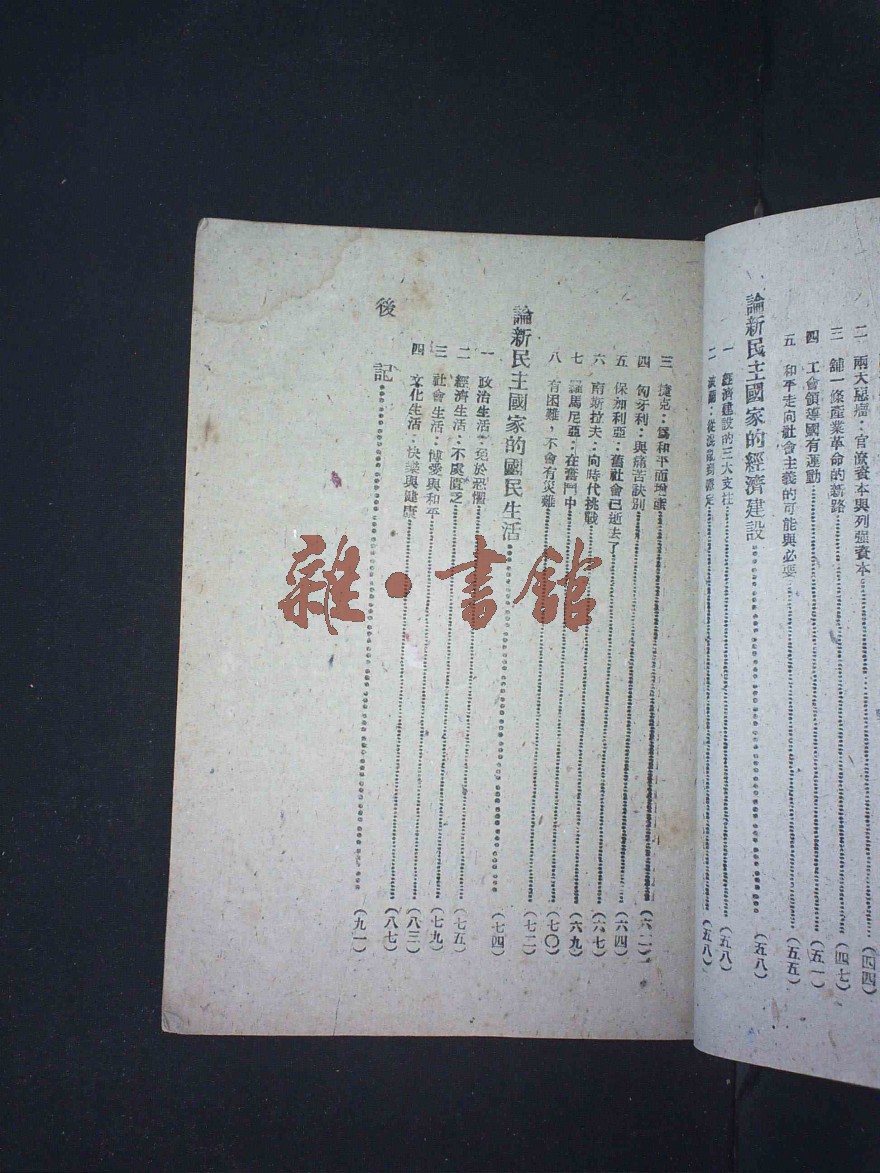 二 兩大惡瘤：官僚資本與列強資本（四四）
三 舖一條產業革命的新路（四七）
四 工會領導國有運動（五一）
五 和平走向社會主義的可能與必要（五五）
論新民主國家的經濟建設（五八）
一 經濟建設的三大支柱（五八）
二 波蘭：從混亂到穩定（五八）
三 捷克：為和平而增產（六二）
四 匈牙利：與痛苦訣別
五 保加利亞：舊社會已逝去了（六四）
六 南斯拉夫：向時代挑戰（六七）
七 羅馬尼亞：在奮鬥中（六九）
八 有困難，不會有災難（七〇）
（七二）
論新民主國家的國民生活（七四）
一 政治生活：免於恐懼
二 經濟生活：不虞匱乏（七五）
三 社會生活：博愛與和平（七九）
四 文化生活：快樂與健康（八三）
（八七）
後記（九一）
雜·書館